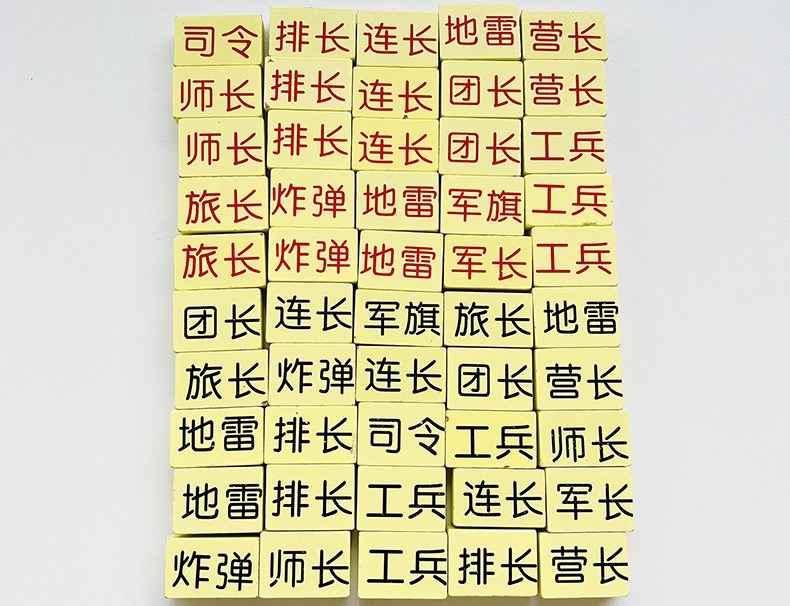 司令 排长 连长 地雷 营长
师长 排长 连长 团长 营长
师长 排长 连长 团长 工兵
旅长 炸弹 地雷 军旗 工兵
旅长 炸弹 地雷 军长 工兵
团长 连长 军旗 旅长 地雷
旅长 炸弹 连长 团长 营长
地雷 排长 司令 工兵 师长
地雷 排长 工兵 连长 军长
炸弹 师长 工兵 排长 营长